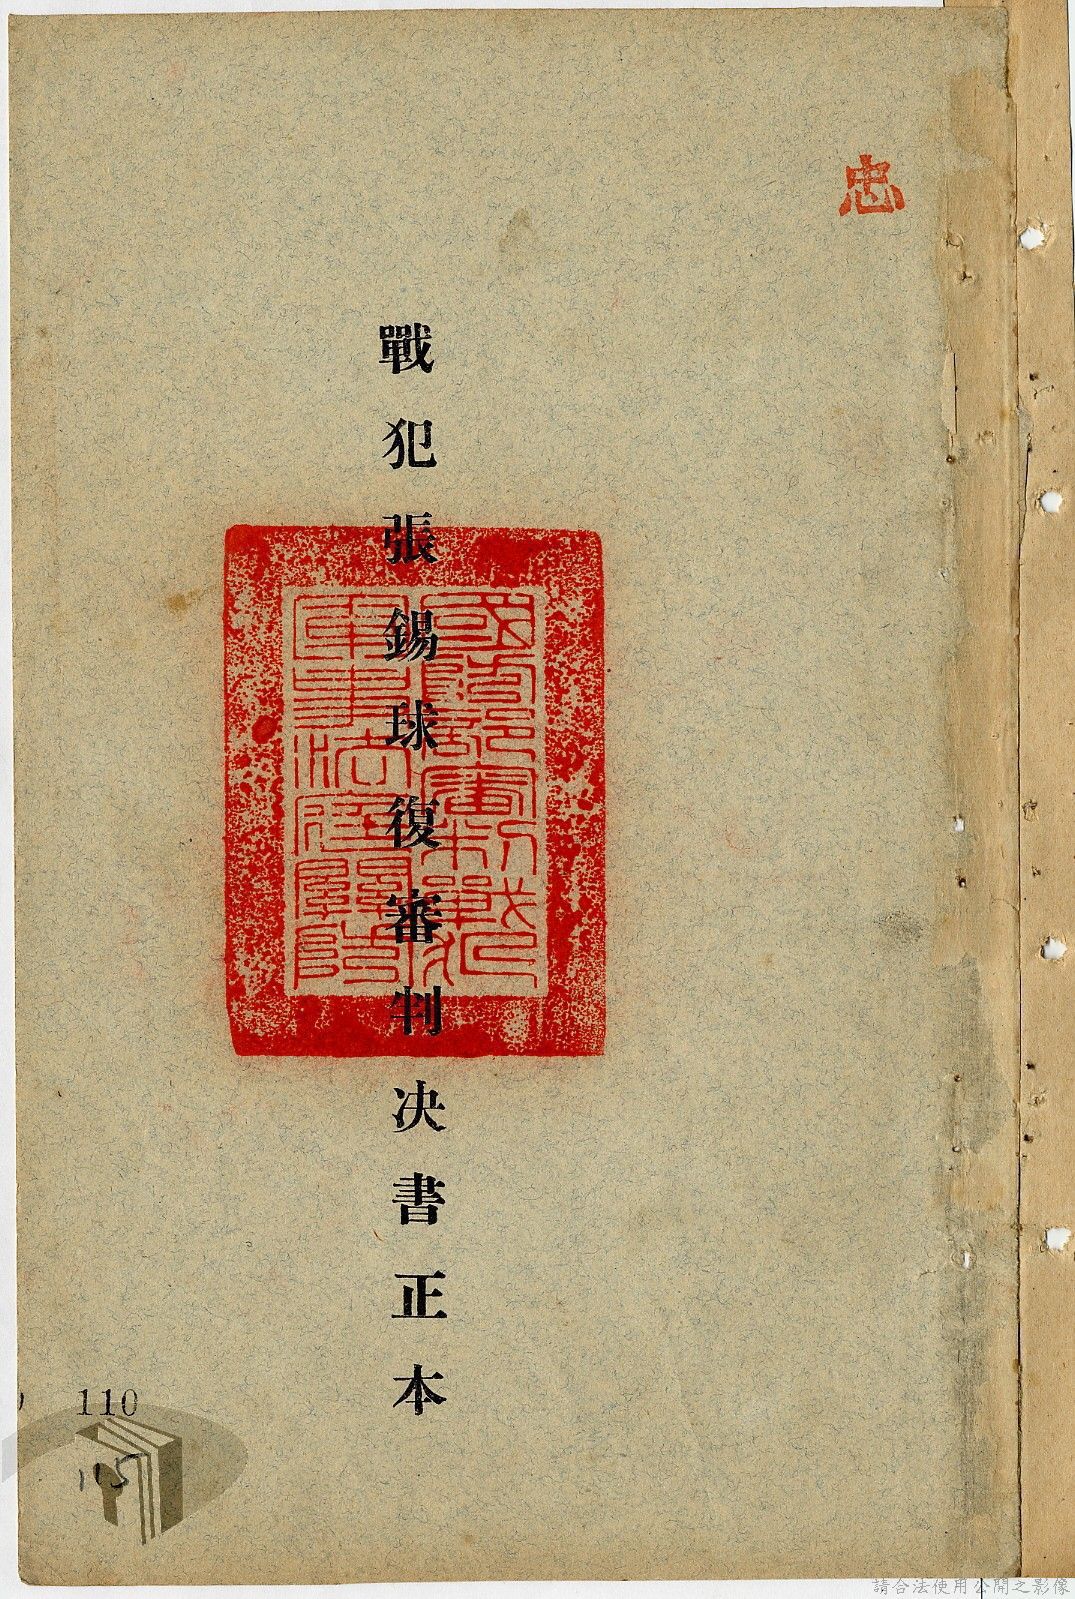 忠
戰犯張錫球復審判决書正本
國防部審判戰犯
軍事法庭關防
110
115
請合法使用公開之影像